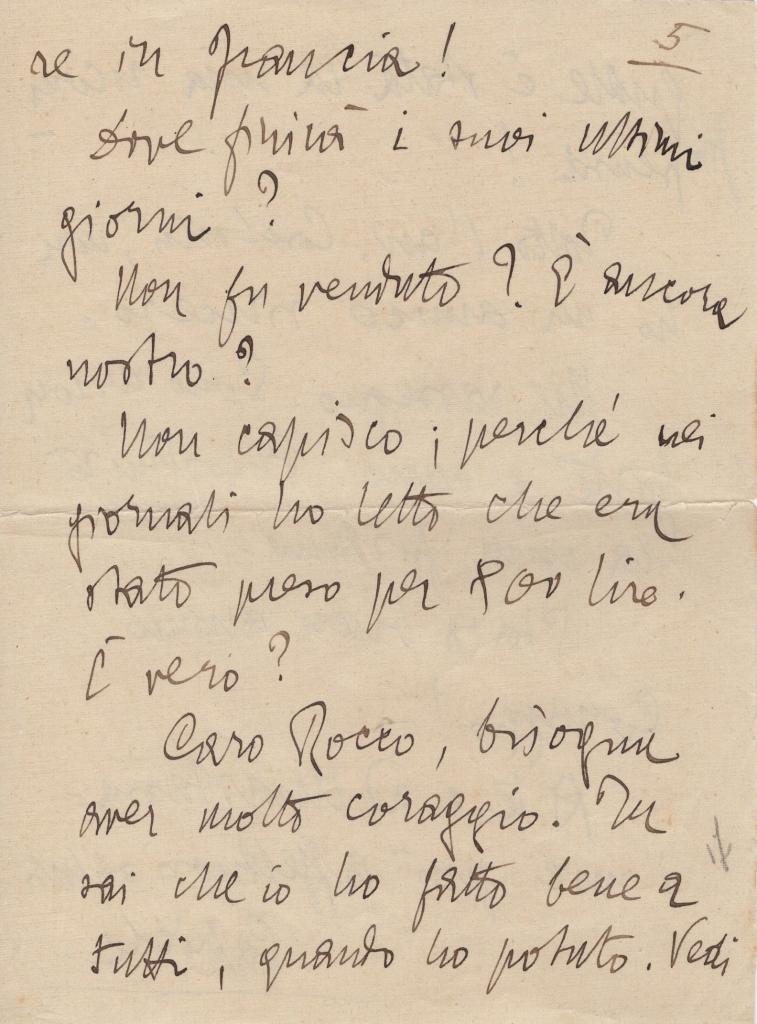 5
re in Francia!
Dove finirà i suoi ultimi
giorni?
Non fu venduto? È ancora
nostro?
Non capisco; perché nei
giornali ho letto che era
stato preso per 800 lire.
È vero?
Caro Rocco, bisogna
aver molto coraggio. Tu
sai che io ho fatto bene a
tutti, quando ho potuto. Vedi